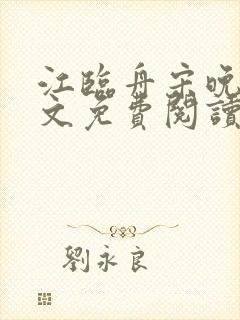 江臨舟宋晚
文免費閱讀
劉永良